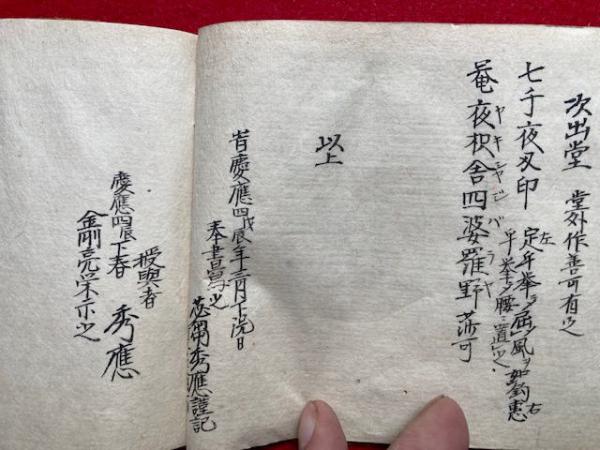 次出堂 堂外作善可有之
七千夜叉印 左定手拳ヲ屈風ヲ如鈎恵右
手拳シ腰ニ置之
菴夜枳舎四婆羅野莎可
ヤキシャジバラヤ
以上
旹慶應四戊辰年三月下浣日
奉書寫之
苾蒭秀應謹記
授與者 秀應
慶應四辰下春
金剛亮栄示之